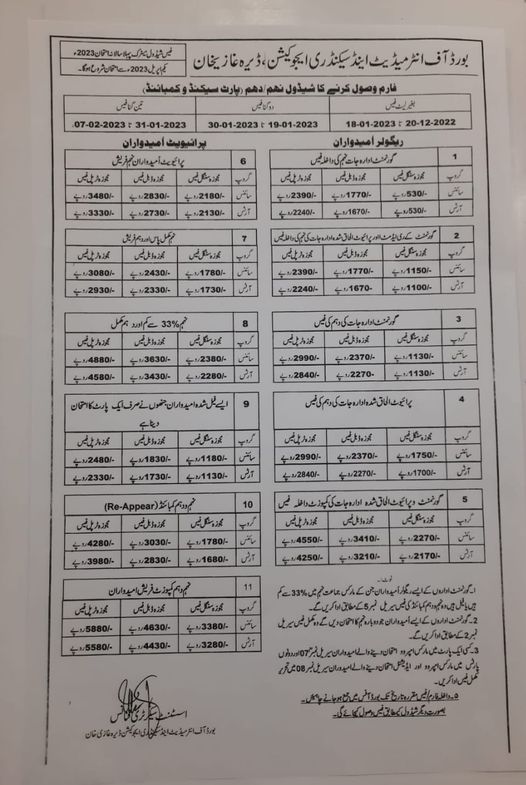 فیس شیڈول میٹرک پہلا سالانہ امتحان 2023ء
یکم اپریل 2023ء سے امتحان شروع ہوگا۔
بورڈ آف انٹرمیڈیٹ اینڈ سیکنڈری ایجوکیشن، ڈیرہ غازیخان
فارم وصول کرنے کا شیڈول نهم/دهم (پارٹ سیکنڈ و کمبائنڈ)
بغیر لیٹ فیس
دو گنا فیس
تین گنا فیس
20-12-2022 تا 18-01-2023
19-01-2023 تا 30-01-2023
31-01-2023 تا 07-02-2023
ریگولر امیدواران
1
گورنمنٹ ادارہ جات نہم کی داخلہ فیس
گروپ مجوزہ سنگل فیس مجوزہ ڈبل فیس مجوزہ ٹرپل فیس
سائنس 530/-روپے 1770/-روپے 2390/-روپے
آرٹس 530/-روپے 1670/-روپے 2240/-روپے
2
گورنمنٹ کے ری ایڈمٹ اور پرائیویٹ الحاق شدہ ادارہ جات کی نہم کی داخلہ فیس
گروپ مجوزہ سنگل فیس مجوزہ ڈبل فیس مجوزہ ٹرپل فیس
سائنس 1150/-روپے 1770/-روپے 2390/-روپے
آرٹس 1100/-روپے 1670- 2240/-روپے
3
گورنمنٹ ادارہ جات کی دہم کی فیس
گروپ مجوزہ سنگل فیس مجوزہ ڈبل فیس مجوزہ ٹرپل فیس
سائنس 1130/-روپے 2370/-روپے 2990/-روپے
آرٹس 1130/-روپے 2270- 2840/-روپے
4
پرائیوٹ الحاق شدہ ادارہ جات کی دہم کی فیس
گروپ مجوزہ سنگل فیس مجوزہ ڈبل فیس مجوزہ ٹرپل فیس
سائنس 1750/-روپے 2370/-روپے 2990/-روپے
آرٹس 1700/-روپے 2270/-روپے 2840/-روپے
5
گورنمنٹ و پرائیوٹ الحاق شدہ ادارہ جات کی کمپوزٹ داخلہ فیس
گروپ مجوزہ سنگل فیس مجوزہ ڈبل فیس مجوزہ ٹرپل فیس
سائنس 2270/-روپے 3410/-روپے 4550/-روپے
آرٹس 2170/-روپے 3210/-روپے 4250/-روپے
پرائیویٹ امیدواران
6
پرائیویٹ امیدواران نہم فریش
گروپ مجوزہ سنگل فیس مجوزہ ڈبل فیس مجوزہ ٹرپل فیس
سائنس 2180/-روپے 2830/-روپے 3480/-روپے
آرٹس 2130/-روپے 2730/-روپے 3330/-روپے
7
نہم مکمل پاس اور دہم فریش
گروپ مجوزہ سنگل فیس مجوزہ ڈبل فیس مجوزہ ٹرپل فیس
سائنس 1780/-روپے 2430/-روپے 3080/-روپے
آرٹس 1730/-روپے 2330/-روپے 2930/-روپے
8
نہم 33% سے کم اور دہم مکمل
گروپ مجوزہ سنگل فیس مجوزہ ڈبل فیس مجوزہ ٹرپل فیس
سائنس 2380/-روپے 3630/-روپے 4880/-روپے
آرٹس 2280/-روپے 3430/-روپے 4580/-روپے
9
ایسے فیل شدہ امیدواران جنھوں نے صرف ایک پارٹ کا امتحان
دینا ہے
گروپ مجوزہ سنگل فیس مجوزہ ڈبل فیس مجوزہ ٹرپل فیس
سائنس 1180/-روپے 1830/-روپے 2480/-روپے
آرٹس 1130/-روپے 1730/-روپے 2330/-روپے
10
نہم دہم کمبائنڈ (Re-Appear)
گروپ مجوزہ سنگل فیس مجوزہ ڈبل فیس مجوزہ ٹرپل فیس
سائنس 1780/-روپے 3030/-روپے 4280/-روپے
آرٹس 1680/-روپے 2830/-روپے 3980/-روپے
11
نہم دہم کمپوزٹ فریش امیدواران
گروپ مجوزہ سنگل فیس مجوزہ ڈبل فیس مجوزہ ٹرپل فیس
سائنس 3380/-روپے 4630/-روپے 5880/-روپے
آرٹس 3280/-روپے 4430/-روپے 5580/-روپے
نوٹ:۔
1۔ گورنمنٹ اداروں کے ایسے ریگولر امیدواران جن کے مارکس جماعت نہم میں 33% سے کم
ہیں یا فیل ہیں وہ نہم دہم کمبائنڈ کی فیس سیریل نمبر 5 کے مطابق ادا کریں گے۔
2۔ گورنمنٹ اداروں کے ایسے امیدواران جو دوبارہ نہم کا امتحان دیں گے وہ مکمل فیس سیریل
نمبر 2 کے مطابق ادا کریں گے۔
3۔ کسی ایک پارٹ میں مارکس امپروو امتحان دینے والے امیدواران سیریل نمبر 07 اور دونوں
پارٹس میں مارکس امپروو اور ایڈیشنل امتحان دینے والے امیدواران سیریل نمبر 08 میں تحریر
مکمل فیس ادا کریں۔
۵۔ داخلہ فارم/فیس مقررہ تاریخ تک بورڈ آفس میں جمع ہو جانے چاہئیں۔
بصورت دیگر شیڈول کے مطابق فیس وصول کی جائے گی۔
اسسٹنٹ سیکرٹری
بورڈ آف انٹرمیڈیٹ اینڈ سیکنڈری ایجوکیشن ڈیرہ غازی خان